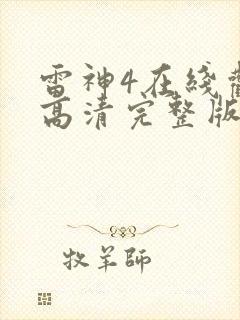 雷神4在线
高清完整版
牧羊師